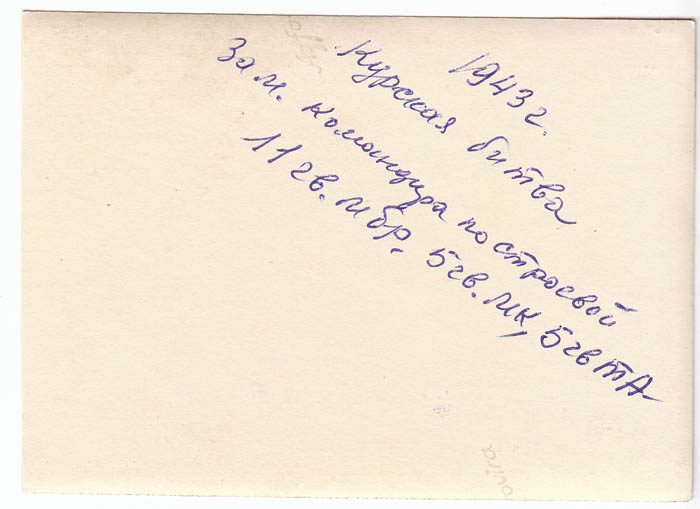 1943г.
Курская битва
Зам. командира по строевой
11 гв. мбр. 5 гв. мк, 5 гв ТА